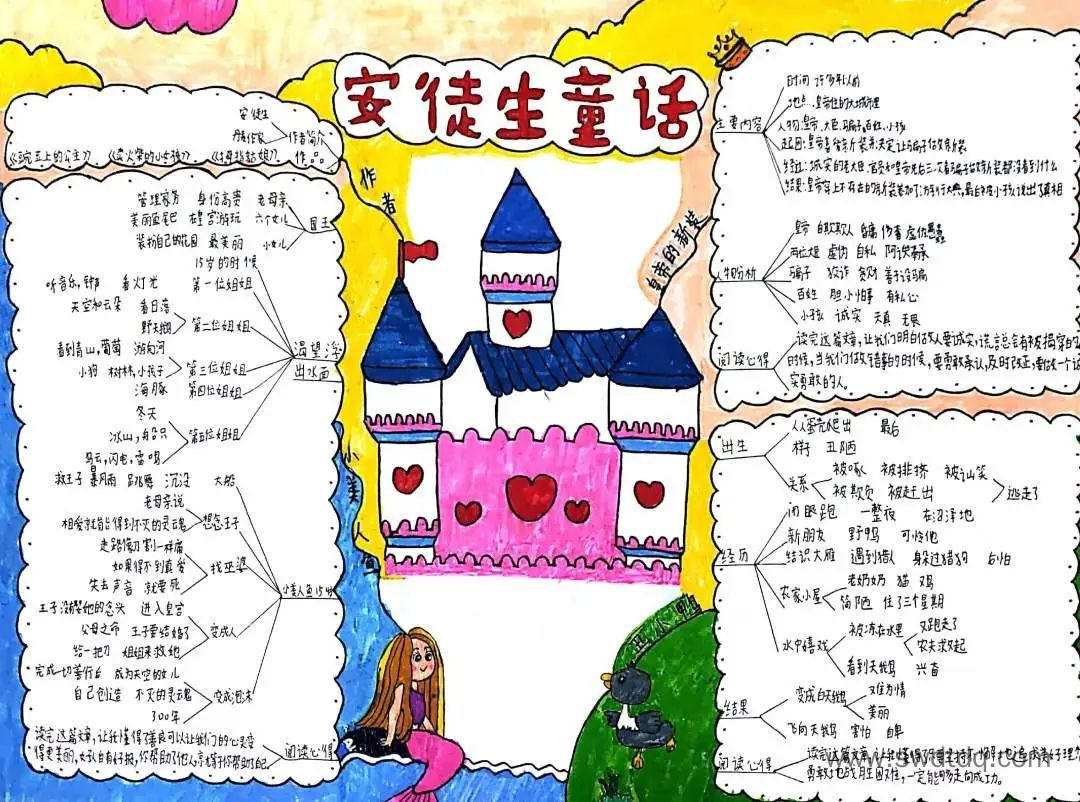 安徒生童话
作者
安徒生
丹麦作家
作者简介
《豌豆上的公主》 《卖火柴的小女孩》 《拇指姑娘》 作品
小美人鱼
管理家务 身份高贵 老母亲
美丽鱼尾巴 在皇宫游玩 六个女儿
国王
装扮自己的花园 最美丽 小女儿
15岁的时候
听音乐,钟声 看灯光 第一位姐姐
天空和云朵 看日落
野天鹅
第二位姐姐
渴望浮出水面
看到青山,葡萄 游向河
小狗 树林,小孩子 第三位姐姐
海豚 第四位姐姐
冬天
冰山,船只 第五位姐姐
乌云,闪电,雷鸣
救王子 暴风雨 跳舞 沉没 大船
老母亲说
相爱就能得到不灭的灵魂 想念王子
走路像刀割一样痛
如果得不到真爱 找巫婆
失去声音 就要死
小美人鱼15岁
王子没有娶她的念头 进入皇宫
父母之命 王子要结婚了 变成人
给一把刀 姐姐来救她
完成一切善行后 成为天空的女儿
自己创造 不灭的灵魂 变成泡沫
300年
读完这篇文章,让我懂得了善良可以让我们的心灵变
得更美丽,好人自有好报,
阅读心得
皇帝的新装
主要内容
时间 许多年以前
地点:皇帝住的大城市里
人物:皇帝、大臣、骗子、百姓、小孩
起因:皇帝喜爱新衣装并决定让骗子做新装
经过:诚实的老大臣、官员和皇帝先后三次看骗子做的新装都没看到什么
结果:皇帝穿上不存在的新装参加了游行大典,最后被小孩说出了真相
人物分析
皇帝 自欺欺人 虚伪 愚蠢
两位大臣 虚伪 自私 阿谀奉承
骗子 狡诈 贪财 善于设骗
百姓 胆小怕事 有私心
小孩 诚实 天真 无畏
阅读心得
读完这篇文章,让我们明白做人要诚实,谎言总会有被揭穿的
时候,当我们做错事的时候,要勇敢承认,及时改正,要做一个诚
实勇敢的人。
丑小鸭
出生
从蛋壳爬出 最后
样子 丑陋
关系
被啄 被排挤 被讪笑
被欺负 被赶出
逃走了
经历
闭眼跑 一整夜 在沼泽地
新朋友 野鸭 可怜他
结识大雁 遇到猎人 躲过猎狗 害怕
农家小屋
老奶奶 猫 鸡
简陋 住了三个星期
水中嬉戏
被冻在水里
又跑走了
农夫救起
看到天鹅 兴奋
结果
变成白天鹅
难为情
美丽
飞向天鹅 害怕 自卑
阅读心得
读完这篇文章,让我懂得了只要坚持不懈
勇敢地战胜困难,一定能够走向成功。